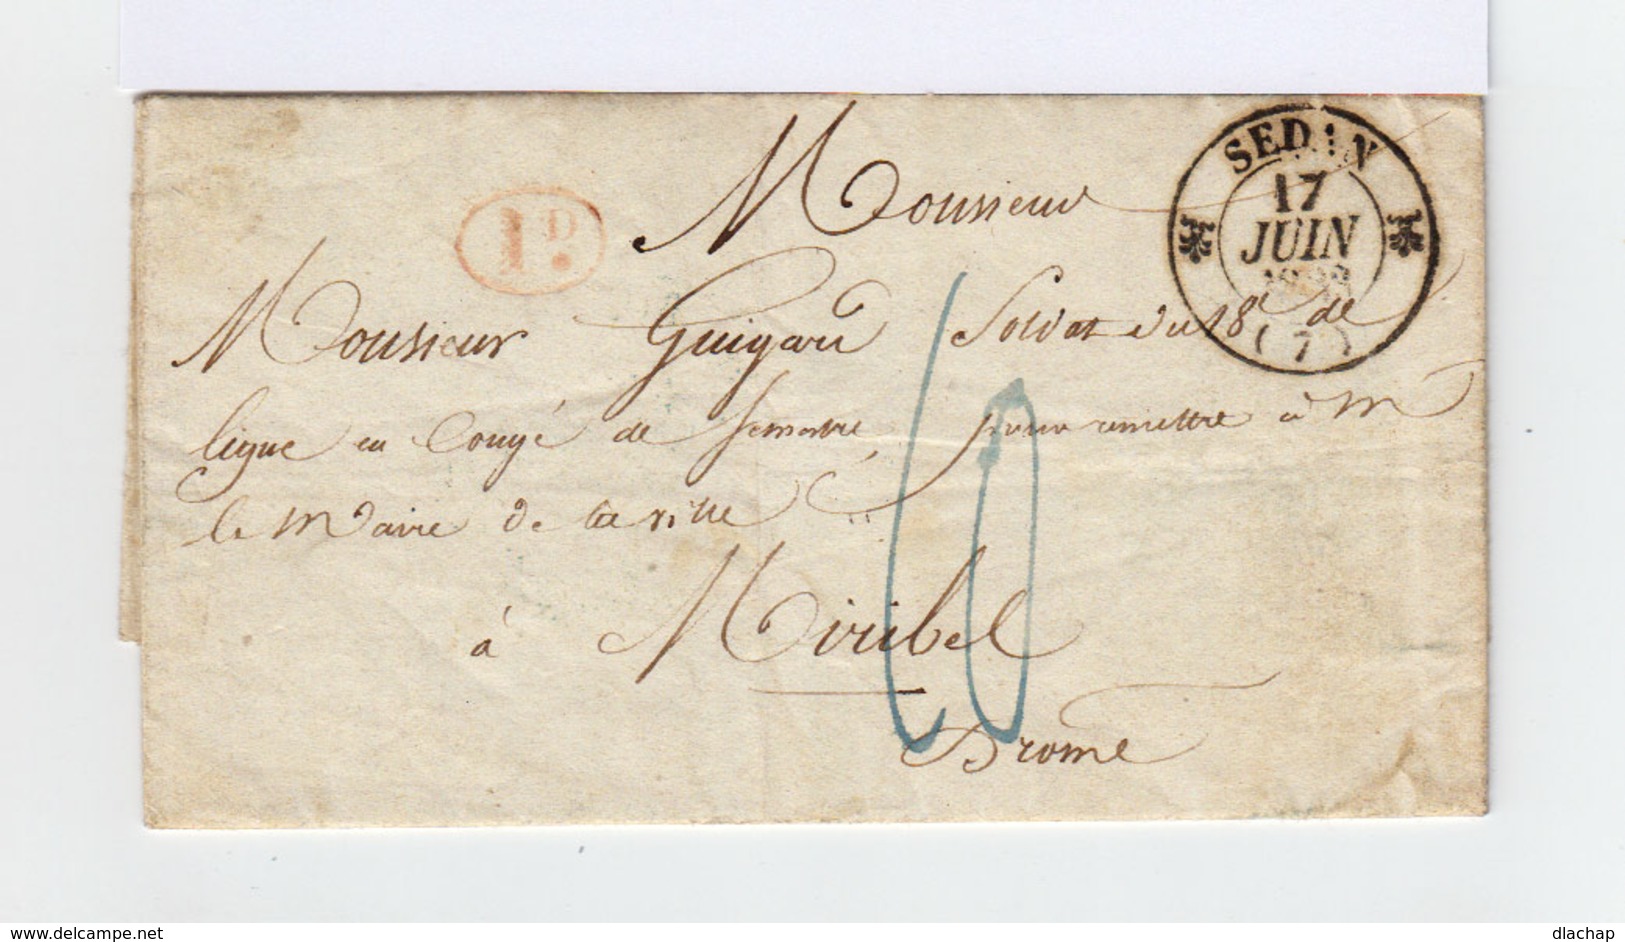 Monsieur
SEDAN
17
JUIN
(7)
1D.
Monsieur Guigard Soldat du 18e de
ligne en Congé de Semestre pour remettre à Mr
le Maire de la ville
à Miribel
Drome
www.delcampe.net
dlachap